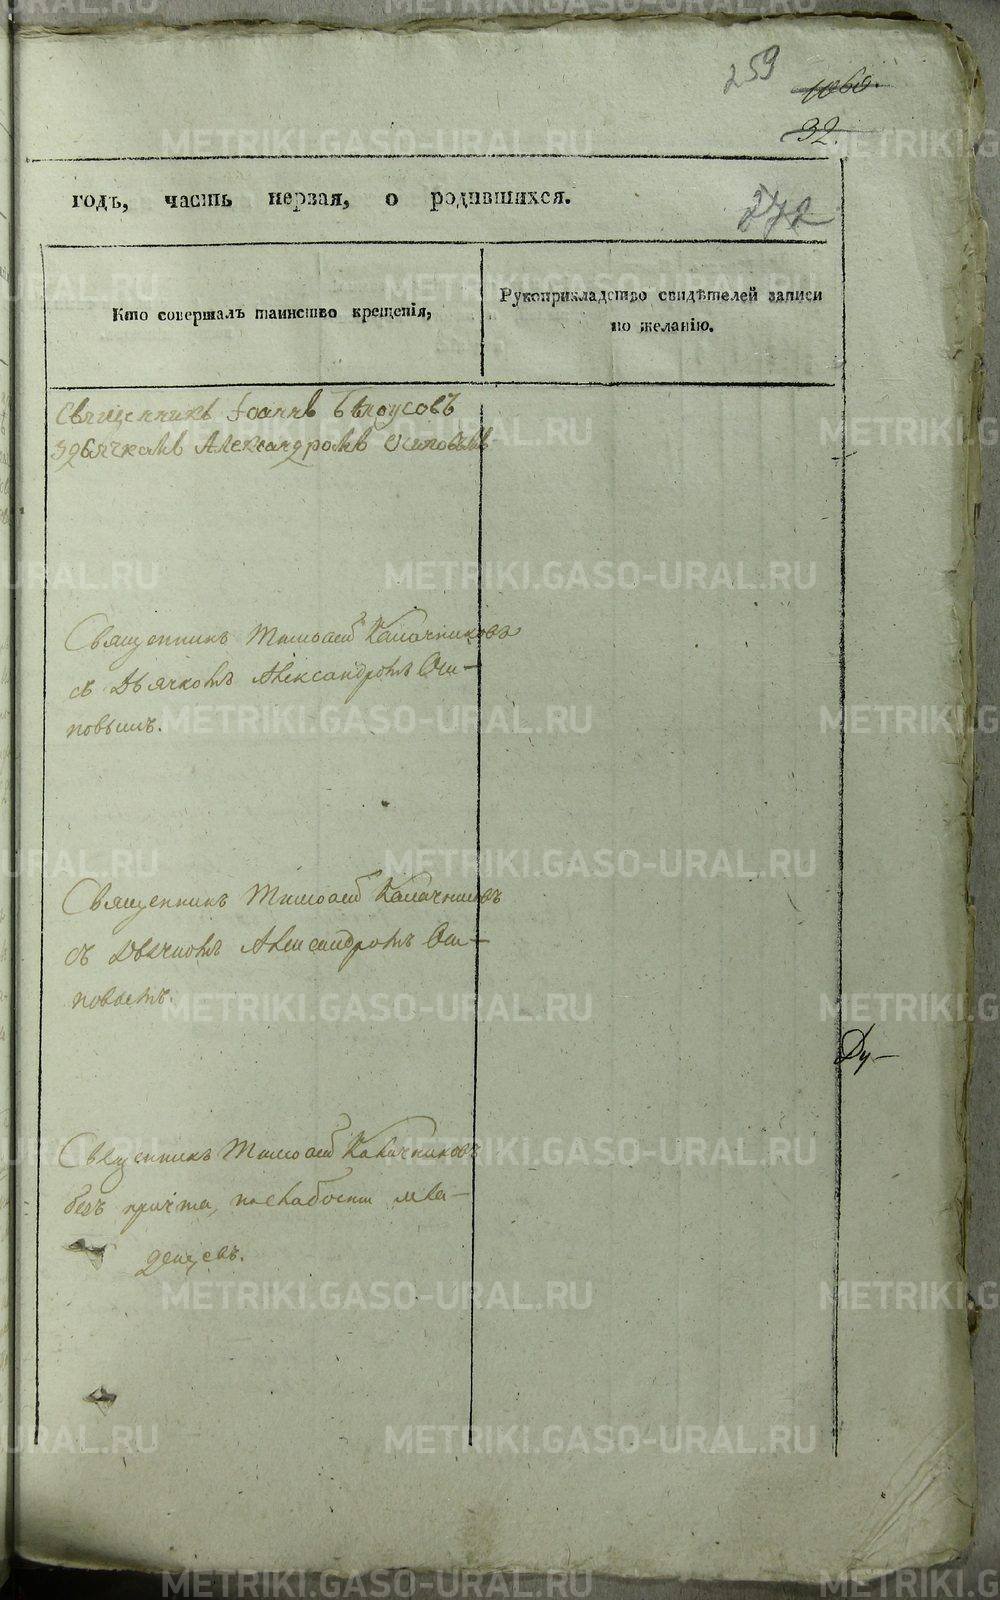 259
1060.
32.
годъ, часть первая, о родившихся.
272
Кто совершалъ таинство крещенія,
Рукоприкладство свидѣтелей записи
по желанію.
Священникъ Іоаннъ Бѣлоусовъ
здьячкомъ Александромъ Осиповымъ
Священникъ Тимофей Калачниковъ
съ Дьячкомъ Александромъ Оси-
повымъ.
Священникъ Тимофей Калачниковъ
съ Дьячкомъ Александромъ Оси-
повымъ.
Ду-
Священникъ Тимофей Калачниковъ
безъ причта, послабости мла-
денцевъ.
METRIKI.GASO-URAL.RU